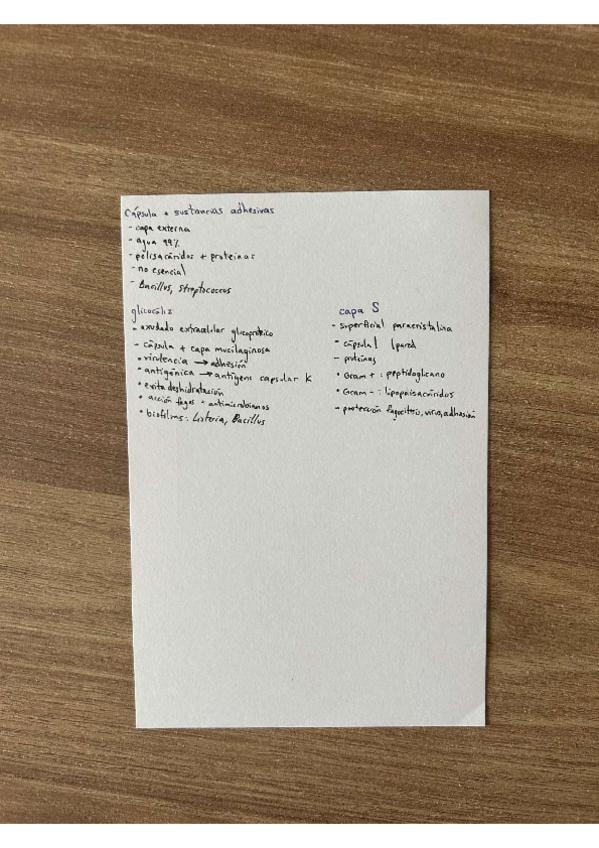 Cápsula + sustancias adhesivas
- capa externa
- agua 99%
- polisacáridos + proteínas
- no esencial
- Bacillus, Streptococcus
glicocáliz
- exudado extracelular glicoproteico
- cápsula + capa mucilaginosa
• virulencia → adhesión
• antigénica → antígeno capsular K
• evita deshidratación
• acción fagos + antimicrobianos
• biofilms: Listeria, Bacillus
capa S
- superficial paracristalina
- cápsula | pared
- proteínas
• Gram + : peptidoglicano
• Gram - : lipopolisacáridos
- protección fagocitosis, virus, adhesión